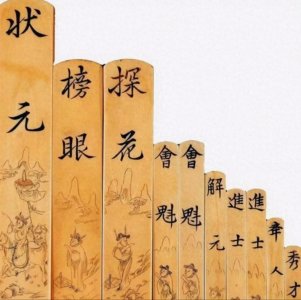 状元
榜眼
探花
會魁
會魁
解元
進士
進士
人
秀才